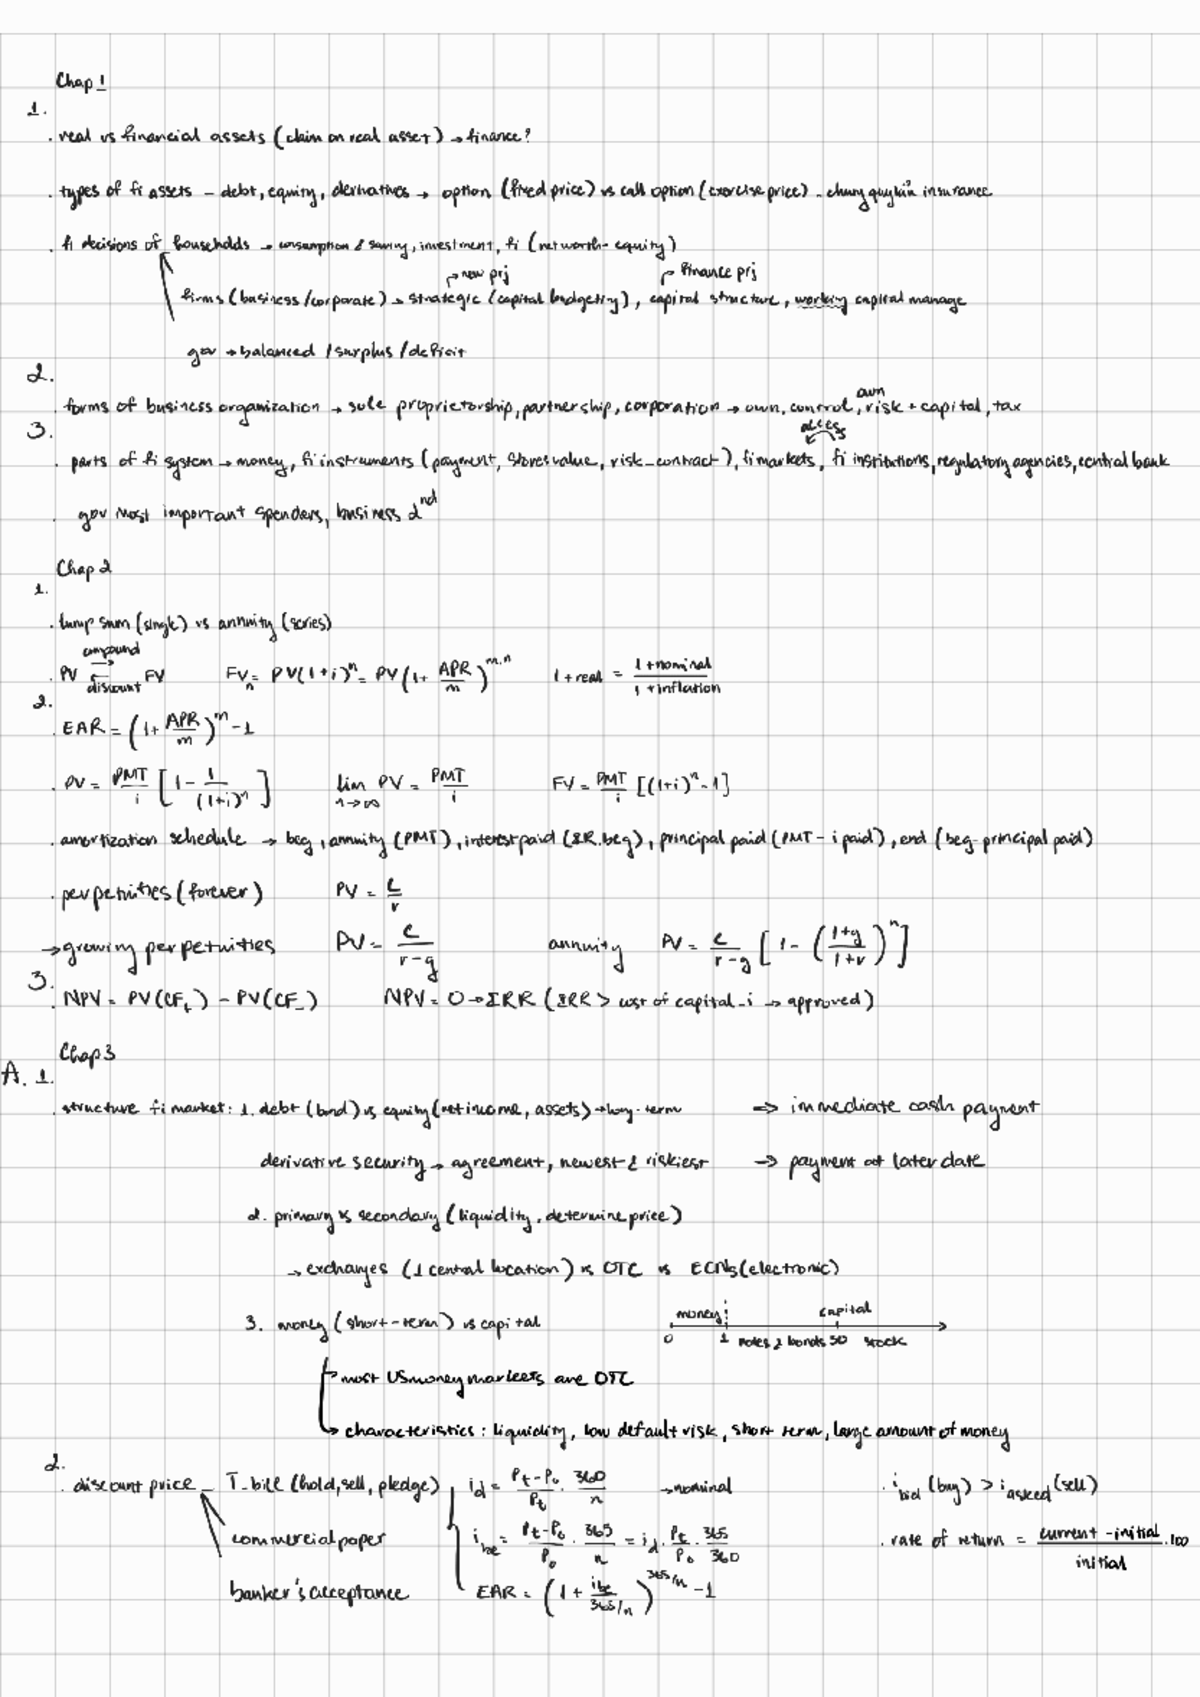 Chap 1
1.
. real vs financial assets (claim on real asset) → finance?
. types of fi assets – debt, equity, derivatives → option (fixed price) vs call option (exercise price) – chung quy luôn insurance
. fi decisions of households → consumption & saving, investment, fi (net worth - equity)
→ new prj → finance prj
firms (business/corporate) → strategic (capital budgeting), capital structure, working capital manage
gov → balanced / surplus / deficit
2.
own
forms of business organization → sole proprietorship, partnership, corporation → own, control, risk + capital, tax
3.
access
. parts of fi system → money, fi instruments (payment, stores value, risk_contract), fi markets, fi institutions, regulatory agencies, central bank
gov most important spenders, business 2nd
Chap 2
1.
. lump sum (single) vs annuity (series)
. PV compound → ← discount FV FV_n = PV(1+i)^n = PV(1+ APR/m)^m.n 1+real = (1+nominal)/(1+inflation)
2.
. EAR = (1+ APR/m)^m - 1
. PV = PMT/i [1 - 1/(1+i)^n] lim n→∞ PV = PMT/i FV = PMT/i [(1+i)^n - 1]
. amortization schedule → beg, annuity (PMT), interest paid (IR.beg), principal paid (PMT - i paid), end (beg-principal paid)
. perpetuities (forever) PV = C/r
→ growing perpetuities PV = C/(r-g) annuity PV = C/(r-g) [1 - ((1+g)/(1+r))^n]
3.
. NPV = PV(CF+) - PV(CF-) NPV = 0 → IRR (IRR > cost of capital_i → approved)
Chap 3
A. 1.
. structure fi market: 1. debt (bond) vs equity (net income, assets) → long-term => immediate cash payment
derivative security → agreement, newest & riskiest → payment at later date
2. primary vs secondary (liquidity, determine price)
→ exchanges (1 central location) vs OTC vs ECNs (electronic)
3. money (short-term) vs capital money capital
0 1 notes & bonds 30 stock
→ most US money markets are OTC
→ characteristics : liquidity, low default risk, short term, large amount of money
2.
. discount price – T_bill (hold, sell, pledge) i_d = (Pt-P0)/Pt . 360/n → nominal . i_bid (buy) > i_asked (sell)
commercial paper i_be = (Pt-P0)/P0 . 365/n = i_d . Pt/P0 . 365/360 . rate of return = (current - initial)/initial .100
banker's acceptance EAR = (1 + i_be/(365/n))^365/n - 1